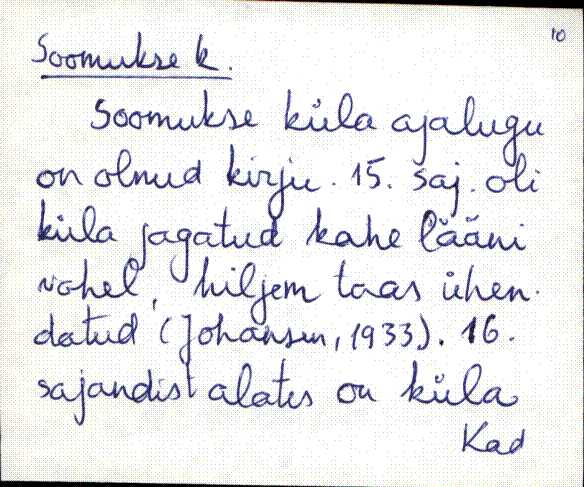 10
Soomukse k.
Soomukse küla ajalugu
on olnud kirju. 15. saj. oli
küla jagatud kahe lääni
vahel, hiljem taas ühen-
datud (Johansen, 1933). 16.
sajandist alates on küla
Kad